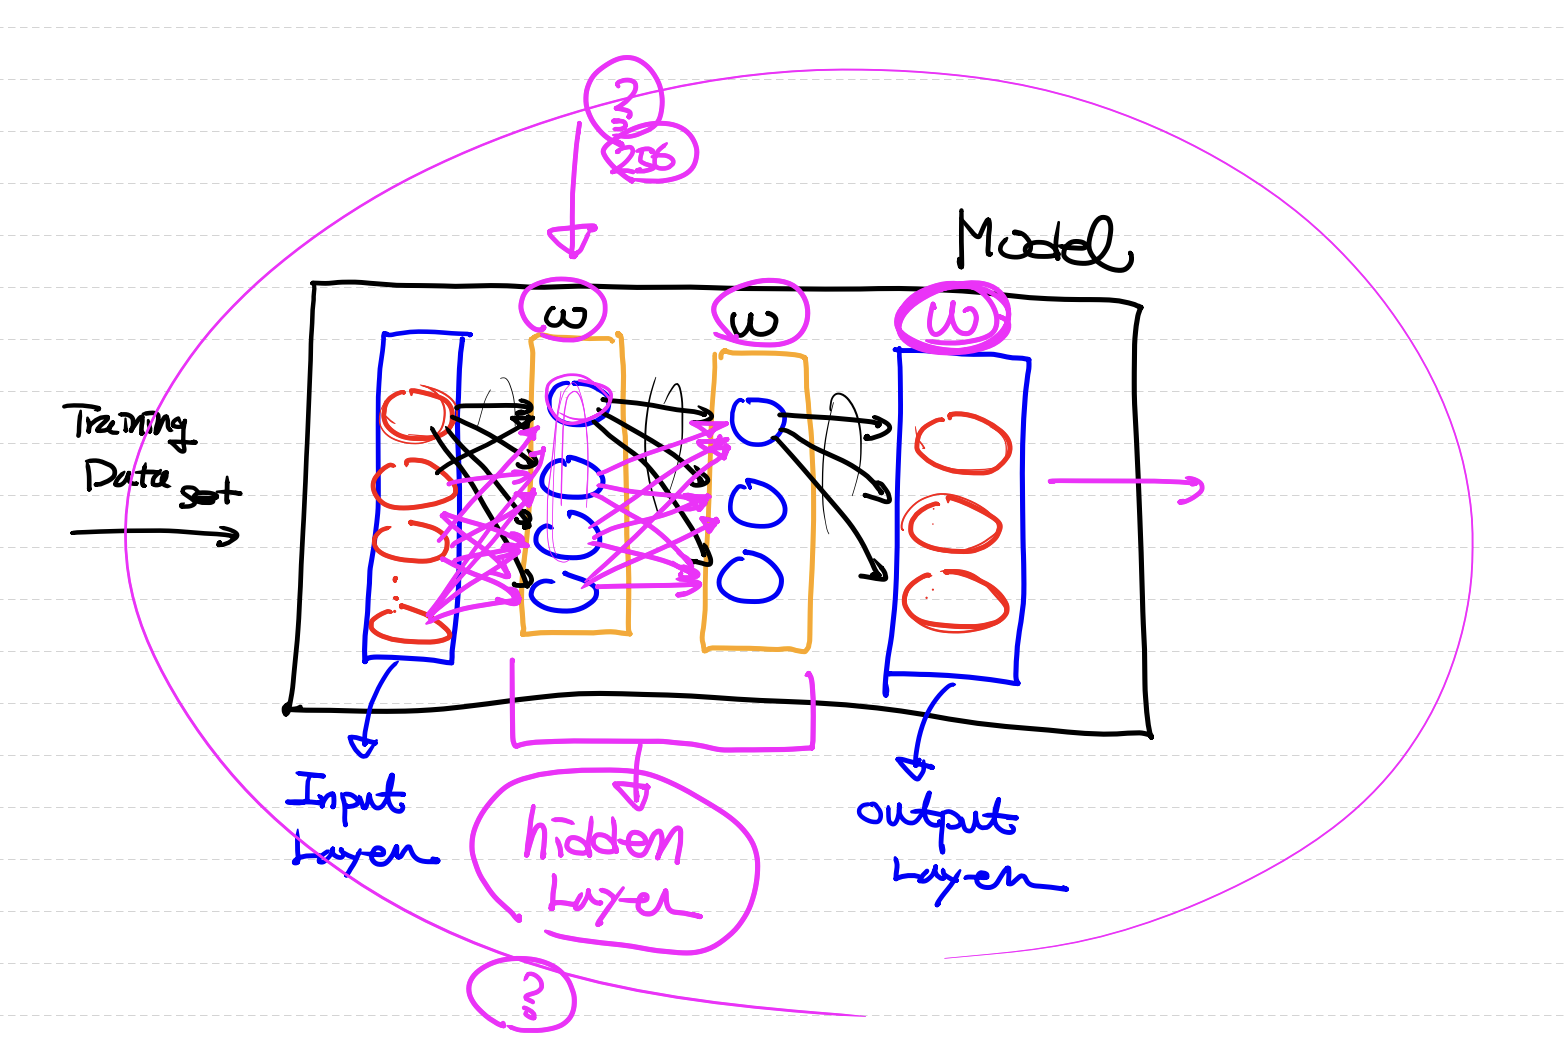 ?
256
Model
ω
ω
ω
Training
Data set
Input
Layer
hidden
Layer
output
Layer
?